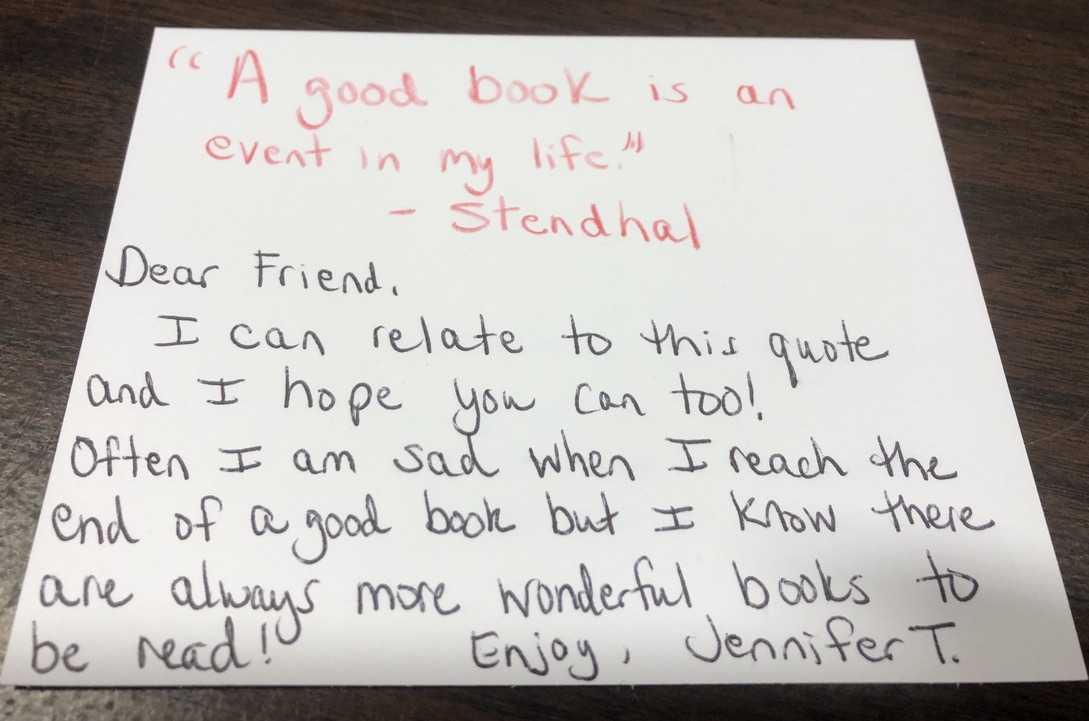 "A good book is an
event in my life."
- Stendhal
Dear Friend,
I can relate to this quote
and I hope you can too!
Often I am sad when I reach the
end of a good book but I know there
are always more wonderful books to
be read! Enjoy, Jennifer T.